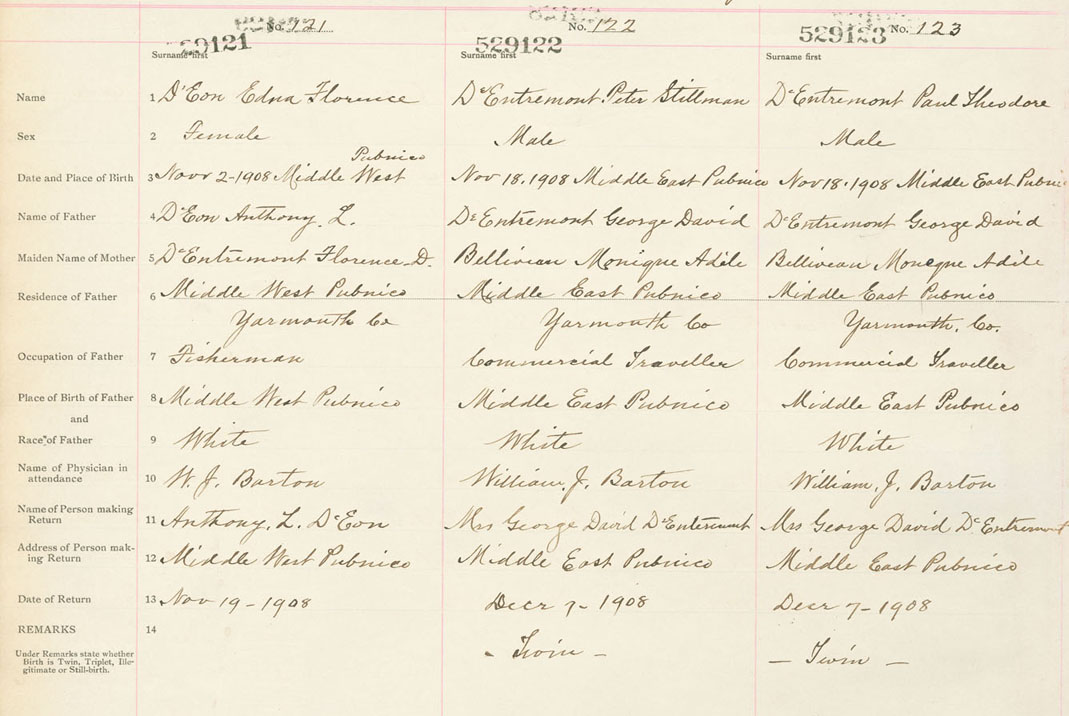 No. 121 No. 122 No. 123
529121 529122 529123
Surname first Surname first Surname first
Name 1 D'Eon Edna Florence DeEntremont Peter Stillman DeEntremont Paul Theodore
Sex 2 Female Male Male
Pubnico
Date and Place of Birth 3 Novr 2-1908 Middle West Nov 18, 1908 Middle East Pubnico Nov 18. 1908 Middle East Pubni
Name of Father 4 DeEon Anthony. L. DeEntremont George David DeEntremont George David
Maiden Name of Mother 5 DeEntremont Florence D. Belliveau Monique Adéle Belliveau Moneque Adéle
Residence of Father 6 Middle West Pubnico Middle East Pubnico Middle East Pubnico
Yarmouth Co Yarmouth Co Yarmouth. Co.
Occupation of Father 7 Fisherman Commercial Traveller Commercial Traveller
Place of Birth of Father 8 Middle West Pubnico Middle East Pubnico Middle East Pubnico
and
Race of Father 9 White White White
Name of Physician in
attendance 10 W. J. Barton William. J. Barton William. J. Barton
Name of Person making
Return 11 Anthony. L. DeEon Mrs George David DeEnteremont Mrs George David DeEntremont
Address of Person mak-
ing Return 12 Middle West Pubnico Middle East Pubnico Middle East Pubnico
Date of Return 13 Nov 19-1908 Decr 7-1908 Decr 7-1908
REMARKS 14
Under Remarks state whether
Birth is Twin, Triplet, Ille-
gitimate or Still-birth.
- Twin - - Twin -